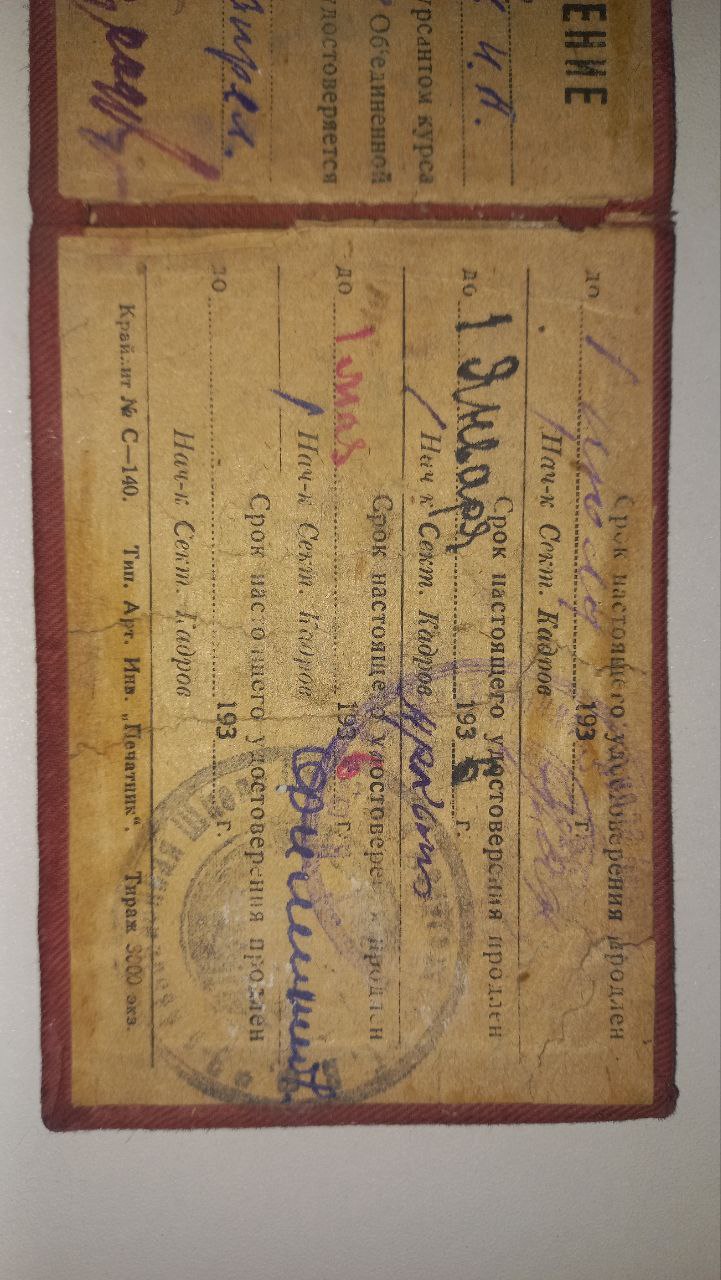 ЕНИЕ
И. К.
урсантом курса
Объединенной
достоверяется
Срок настоящего удостоверения продлен
до 1 193 г.
Нач-к Сект. Кадров
Срок настоящего удостоверения продлен
до 1 Января 1936 г.
Нач-к Сект. Кадров
Срок настоящего удостоверения продлен
до 1 мая 1936 г.
Нач-к Сект. Кадров
Срок настоящего удостоверения продлен
до 193 г.
Нач-к Сект. Кадров
Крайлит № С—140. Тип. Арт. Инв. „Печатник“. Тираж 3000 экз.